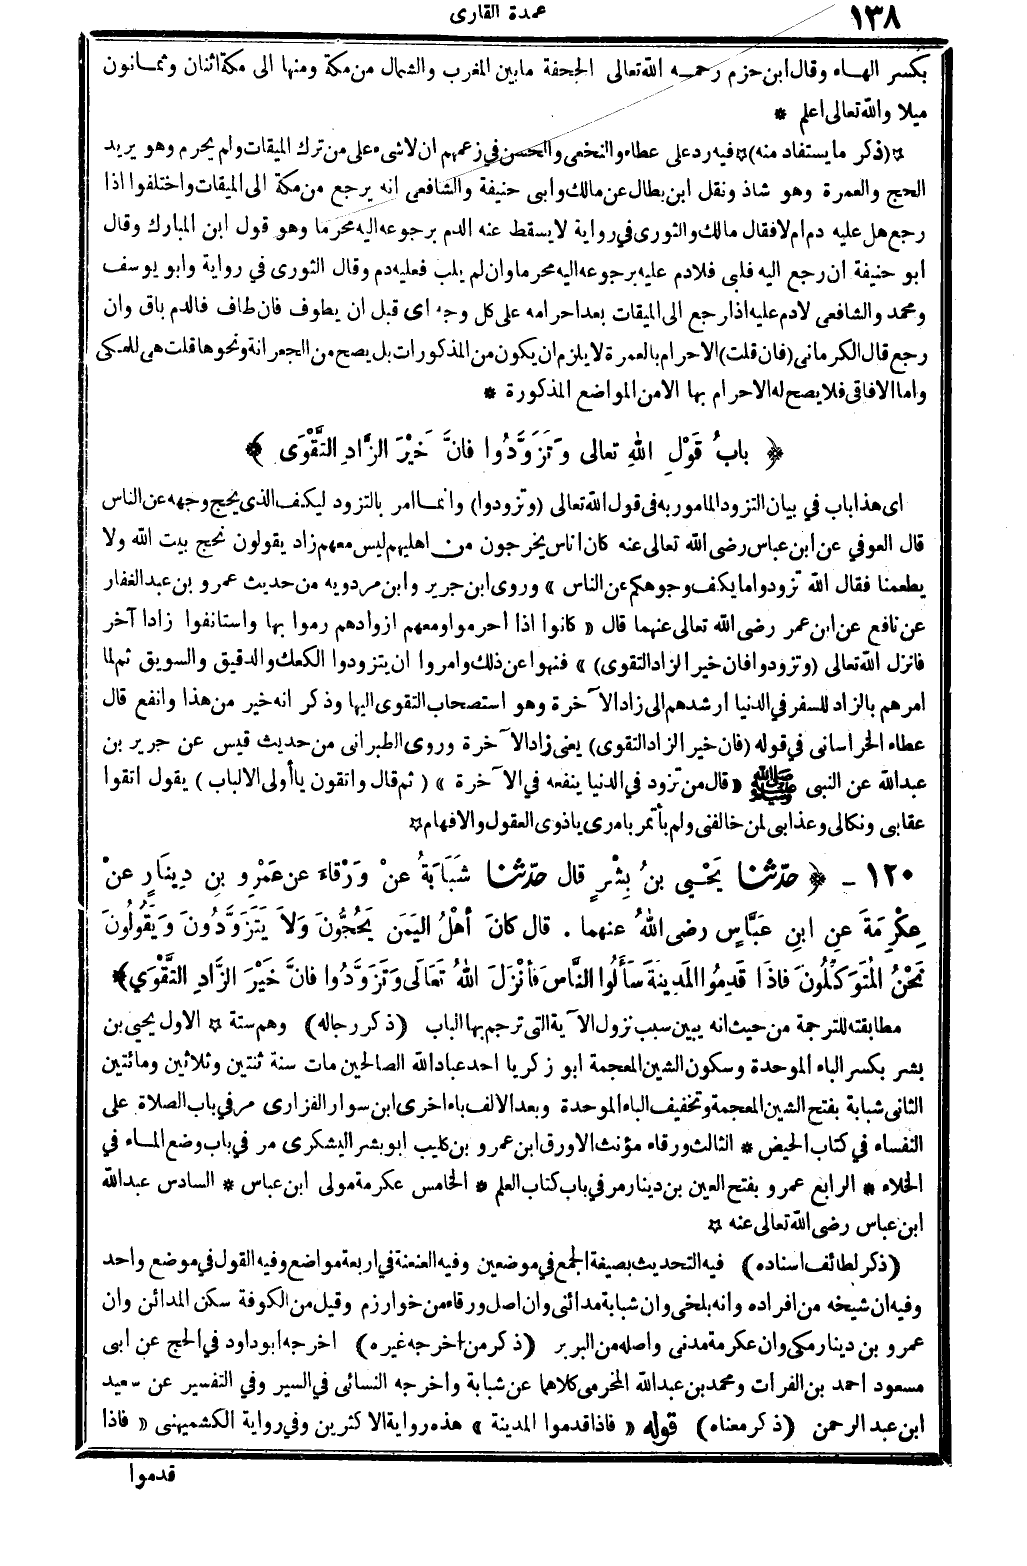 ١٣٨
عمدة القارى
بكسر الهاء وقال ابن حزم رحمه الله تعالى الجحفة مابين المغرب والشمال من مكة ومنها الى مكة اثنان وثمانون
ميلا والله تعالى اعلم *
☆(ذكر ما يستفاد منه)☆ فيه رد على عطاء والنخعى والحسن في زعمهم ان لاشىء على من ترك الميقات ولم يحرم وهو يريد
الحج والعمرة وهو شاذ ونقل ابن بطال عن مالك وابى حنيفة والشافعى انه يرجع من مكة الى الميقات واختلفوا اذا
رجع هل عليه دم ام لا فقال مالك والثورى في رواية لا يسقط عنه الدم برجوعه اليه محرما وهو قول ابن المبارك وقال
ابو حنيفة ان رجع اليه فلبى فلادم عليه برجوعه اليه محرما وان لم يلب فعليه دم وقال الثورى في رواية وابو يوسف
ومحمد والشافعى لادم عليه اذا رجع الى الميقات بعد احرامه على كل وجه اى قبل ان يطوف فان طاف فالدم باق وان
رجع قال الكرمانى (فان قلت) الاحرام بالعمرة لا يلزم ان يكون من المذكورات بل يصح من الجعرانة ونحوها قلت هى للمكى
واما الافاقى فلا يصح له الاحرام بها الا من المواضع المذكورة *
﴿ بابُ قَوْلِ اللهِ تعالى وَتَزَوَّدُوا فانَّ خَيْرَ الزَّادِ التَّقْوَى ﴾
اى هذا باب في بيان التزود المامور به فى قول الله تعالى (وتزودوا) وانما امر بالتزود ليكف الذى يحج وجهه عن الناس
قال العوفي عن ابن عباس رضى الله تعالى عنه كان اناس يخرجون من اهليهم ليس معهم زاد يقولون نحج بيت الله ولا
يطعمنا فقال الله تزودوا ما يكف وجوهكم عن الناس » وروى ابن جرير وابن مردويه من حديث عمرو بن عبد الغفار
عن نافع عن ابن عمر رضى الله تعالى عنهما قال « كانوا اذا احرموا ومعهم ازوادهم رموا بها واستانفوا زادا آخر
فانزل الله تعالى (وتزودوا فان خير الزاد التقوى) » فنهوا عن ذلك وامروا ان يتزودوا الكعك والدقيق والسويق ثم لما
امرهم بالزاد للسفر في الدنيا ارشدهم الى زاد الآخرة وهو استصحاب التقوى اليها وذكر انه خير من هذا وانفع قال
عطاء الخراسانى في قوله (فان خير الزاد التقوى) يعنى زاد الآخرة وروى الطبرانى من حديث قيس عن جرير بن
عبدالله عن النبى ﷺ «قال من تزود في الدنيا ينفعه في الآخرة » ( ثم قال واتقون يا أولى الالباب ) يقول اتقوا
عقابى ونكالى وعذابى لمن خالفنى ولم يأتمر بامرى ياذوى العقول والافهام☆
١٢٠ - ﴿ حدّثنا يَحْيى بنُ بِشْرٍ قال حدّثنا شَبَابَةُ عنْ وَرْقاءَ عن عَمْرِو بنِ دِينَارٍ عنْ
عِكْرِمَةَ عنِ ابنِ عَبَّاسٍ رضى اللهُ عنهما . قال كانَ أهْلُ اليَمَنِ يَحُجُّونَ وَلاَ يَتَزَوَّدُونَ وَيَقُولُونَ
نَحْنُ المُتَوَكِّلُونَ فاذَا قَدِمُوا المَدِينَةَ سَأَلُوا النَّاسَ فأنْزَلَ اللهُ تَعَالَى وَتَزَوَّدُوا فانَّ خَيْرَ الزَّادِ التَّقْوَى﴾
مطابقته للترجمة من حيث انه يبين سبب نزول الآية التى ترجم بها الباب (ذكر رجاله) وهم ستة ☆ الاول يحيى بن
بشر بكسر الباء الموحدة وسكون الشين المعجمة ابو زكريا احد عباد الله الصالحين مات سنة ثنتين وثلاثين ومائتين
الثانى شبابة بفتح الشين المعجمة وتخفيف الباء الموحدة وبعد الالف باء اخرى ابن سوار الفزارى مر في باب الصلاة على
النفساء في كتاب الحيض * الثالث ورقاء مؤنث الاورق ابن عمرو بن كليب ابو بشر اليشكرى مر في باب وضع الماء في
الخلاء * الرابع عمرو بفتح العين بن دينار مر في باب كتاب العلم * الخامس عكرمة مولى ابن عباس * السادس عبدالله
ابن عباس رضى الله تعالى عنه ☆
(ذكر لطائف اسناده) فيه التحديث بصيغة الجمع في موضعين وفيه العنعنة في اربعة مواضع وفيه القول في موضع واحد
وفيه ان شيخه من افراده وانه بلخى وان شبابة مدائنى وان اصل ورقاء من خوارزم وقيل من الكوفة سكن المدائن وان
عمرو بن دينار مكى وان عكرمة مدنى واصله من البربر (ذكر من اخرجه غيره) اخرجه ابو داود في الحج عن ابى
مسعود احمد بن الفرات ومحمد بن عبدالله المخرمى كلاهما عن شبابة واخرجه النسائى في السير وفي التفسير عن سعيد
ابن عبد الرحمن (ذكر معناه) قوله « فاذا قدموا المدينة » هذه رواية الاكثرين وفي رواية الكشميهنى « فاذا
قدموا